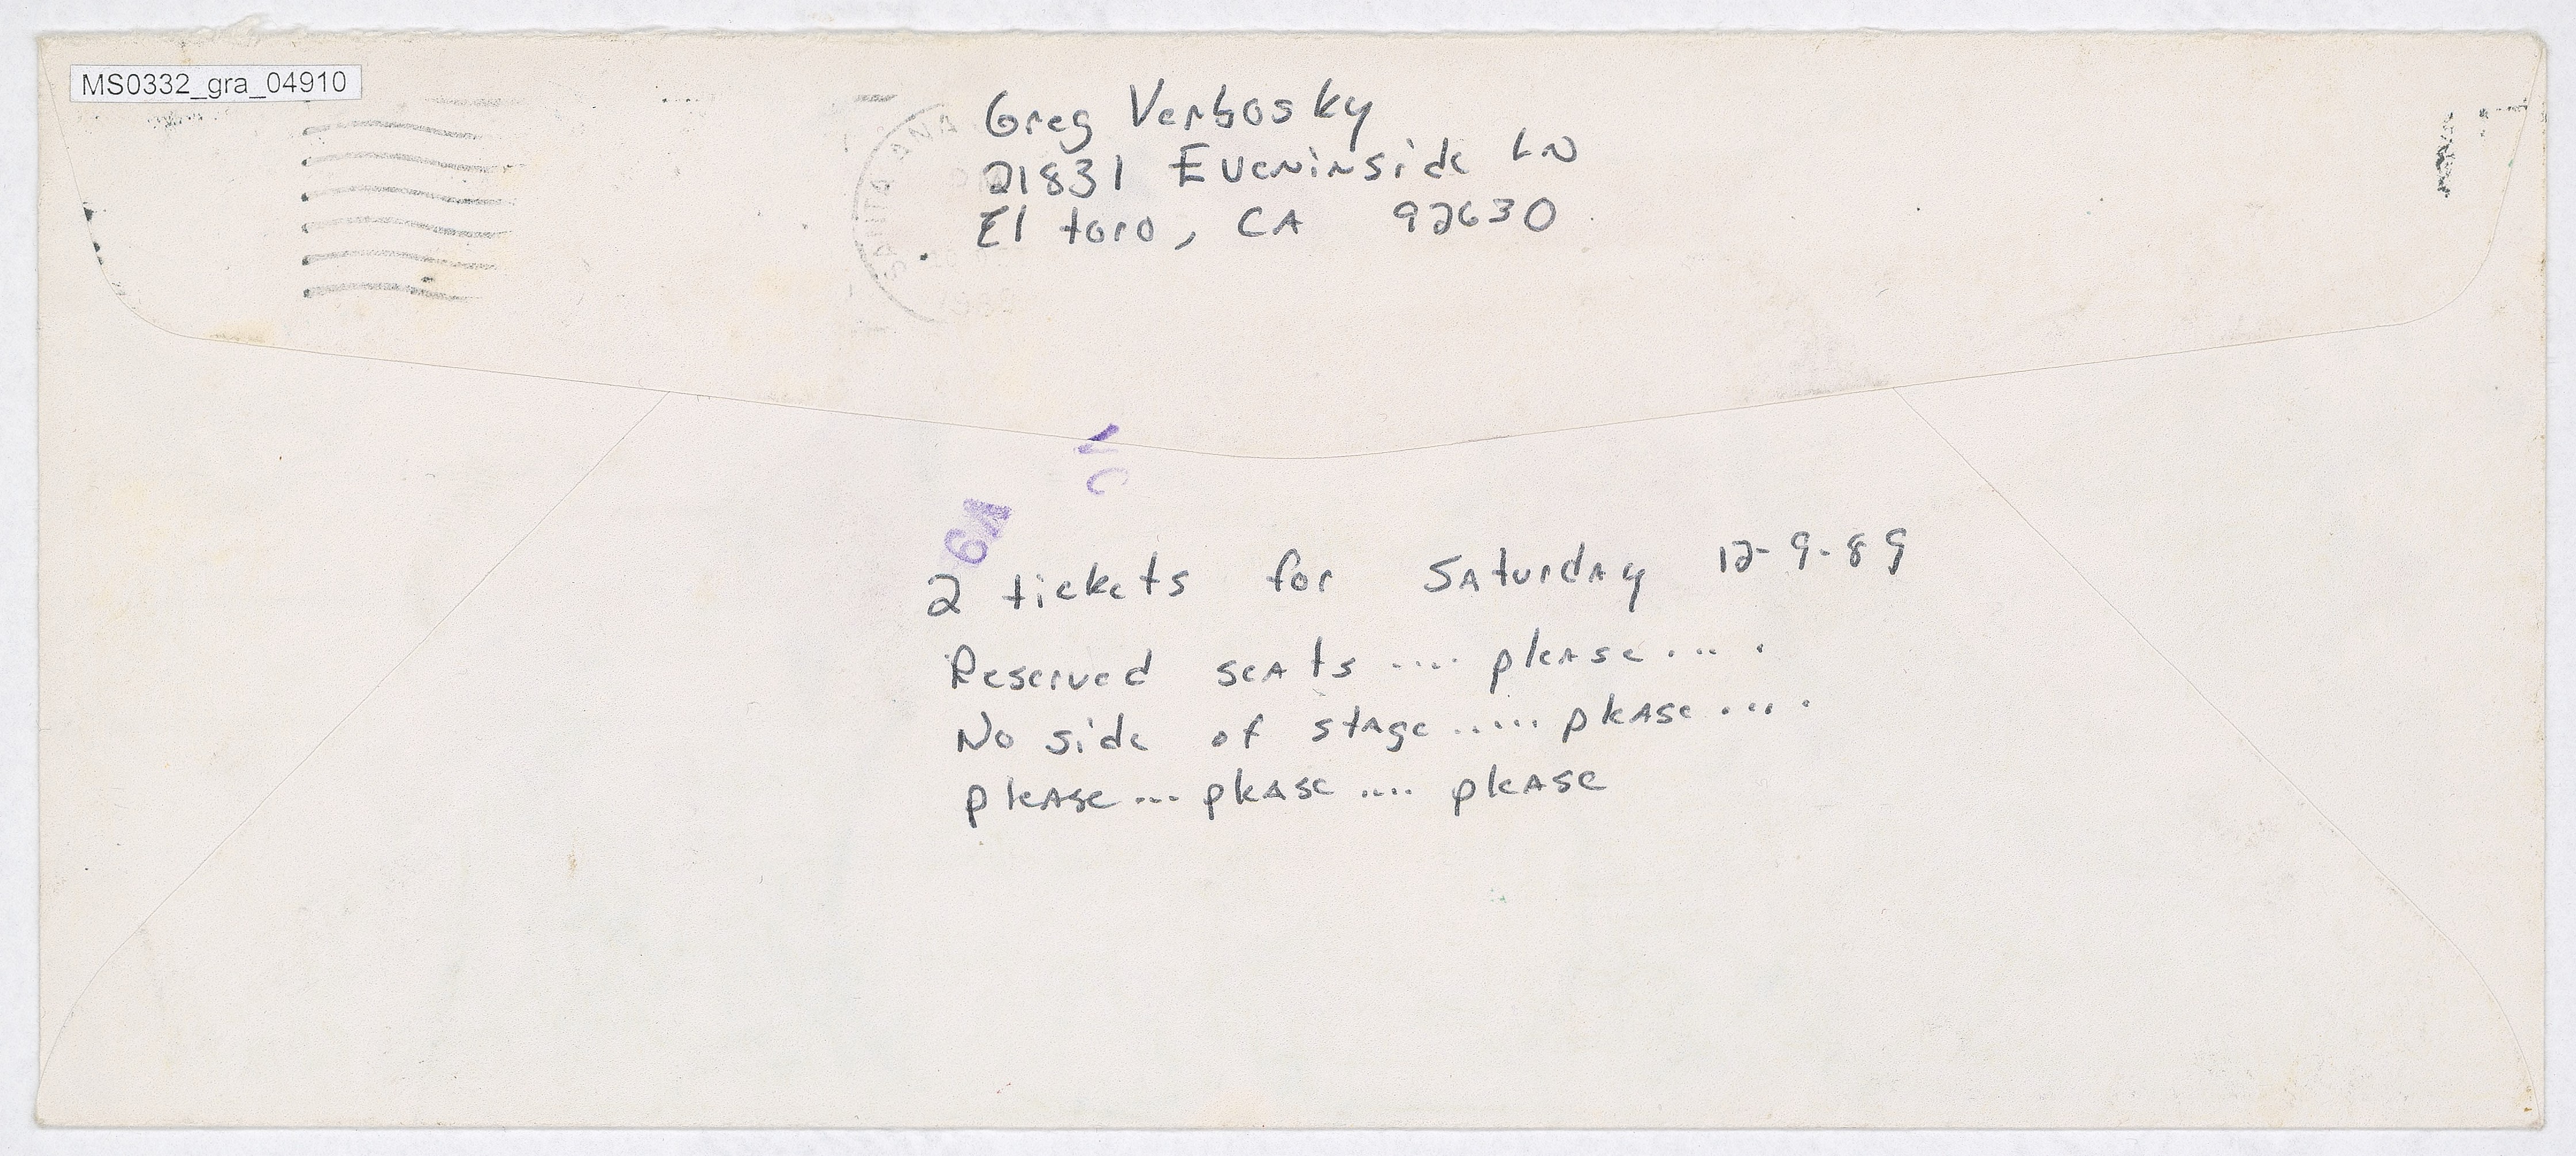 MS0332_gra_04910
Greg Verbosky
21831 Eveninside LN
El toro, CA 92630
SANTA ANA
6A
2 tickets for Saturday 12-9-89
Reserved seats .... please ....
No side of stage ..... please ....
please ... please .... please